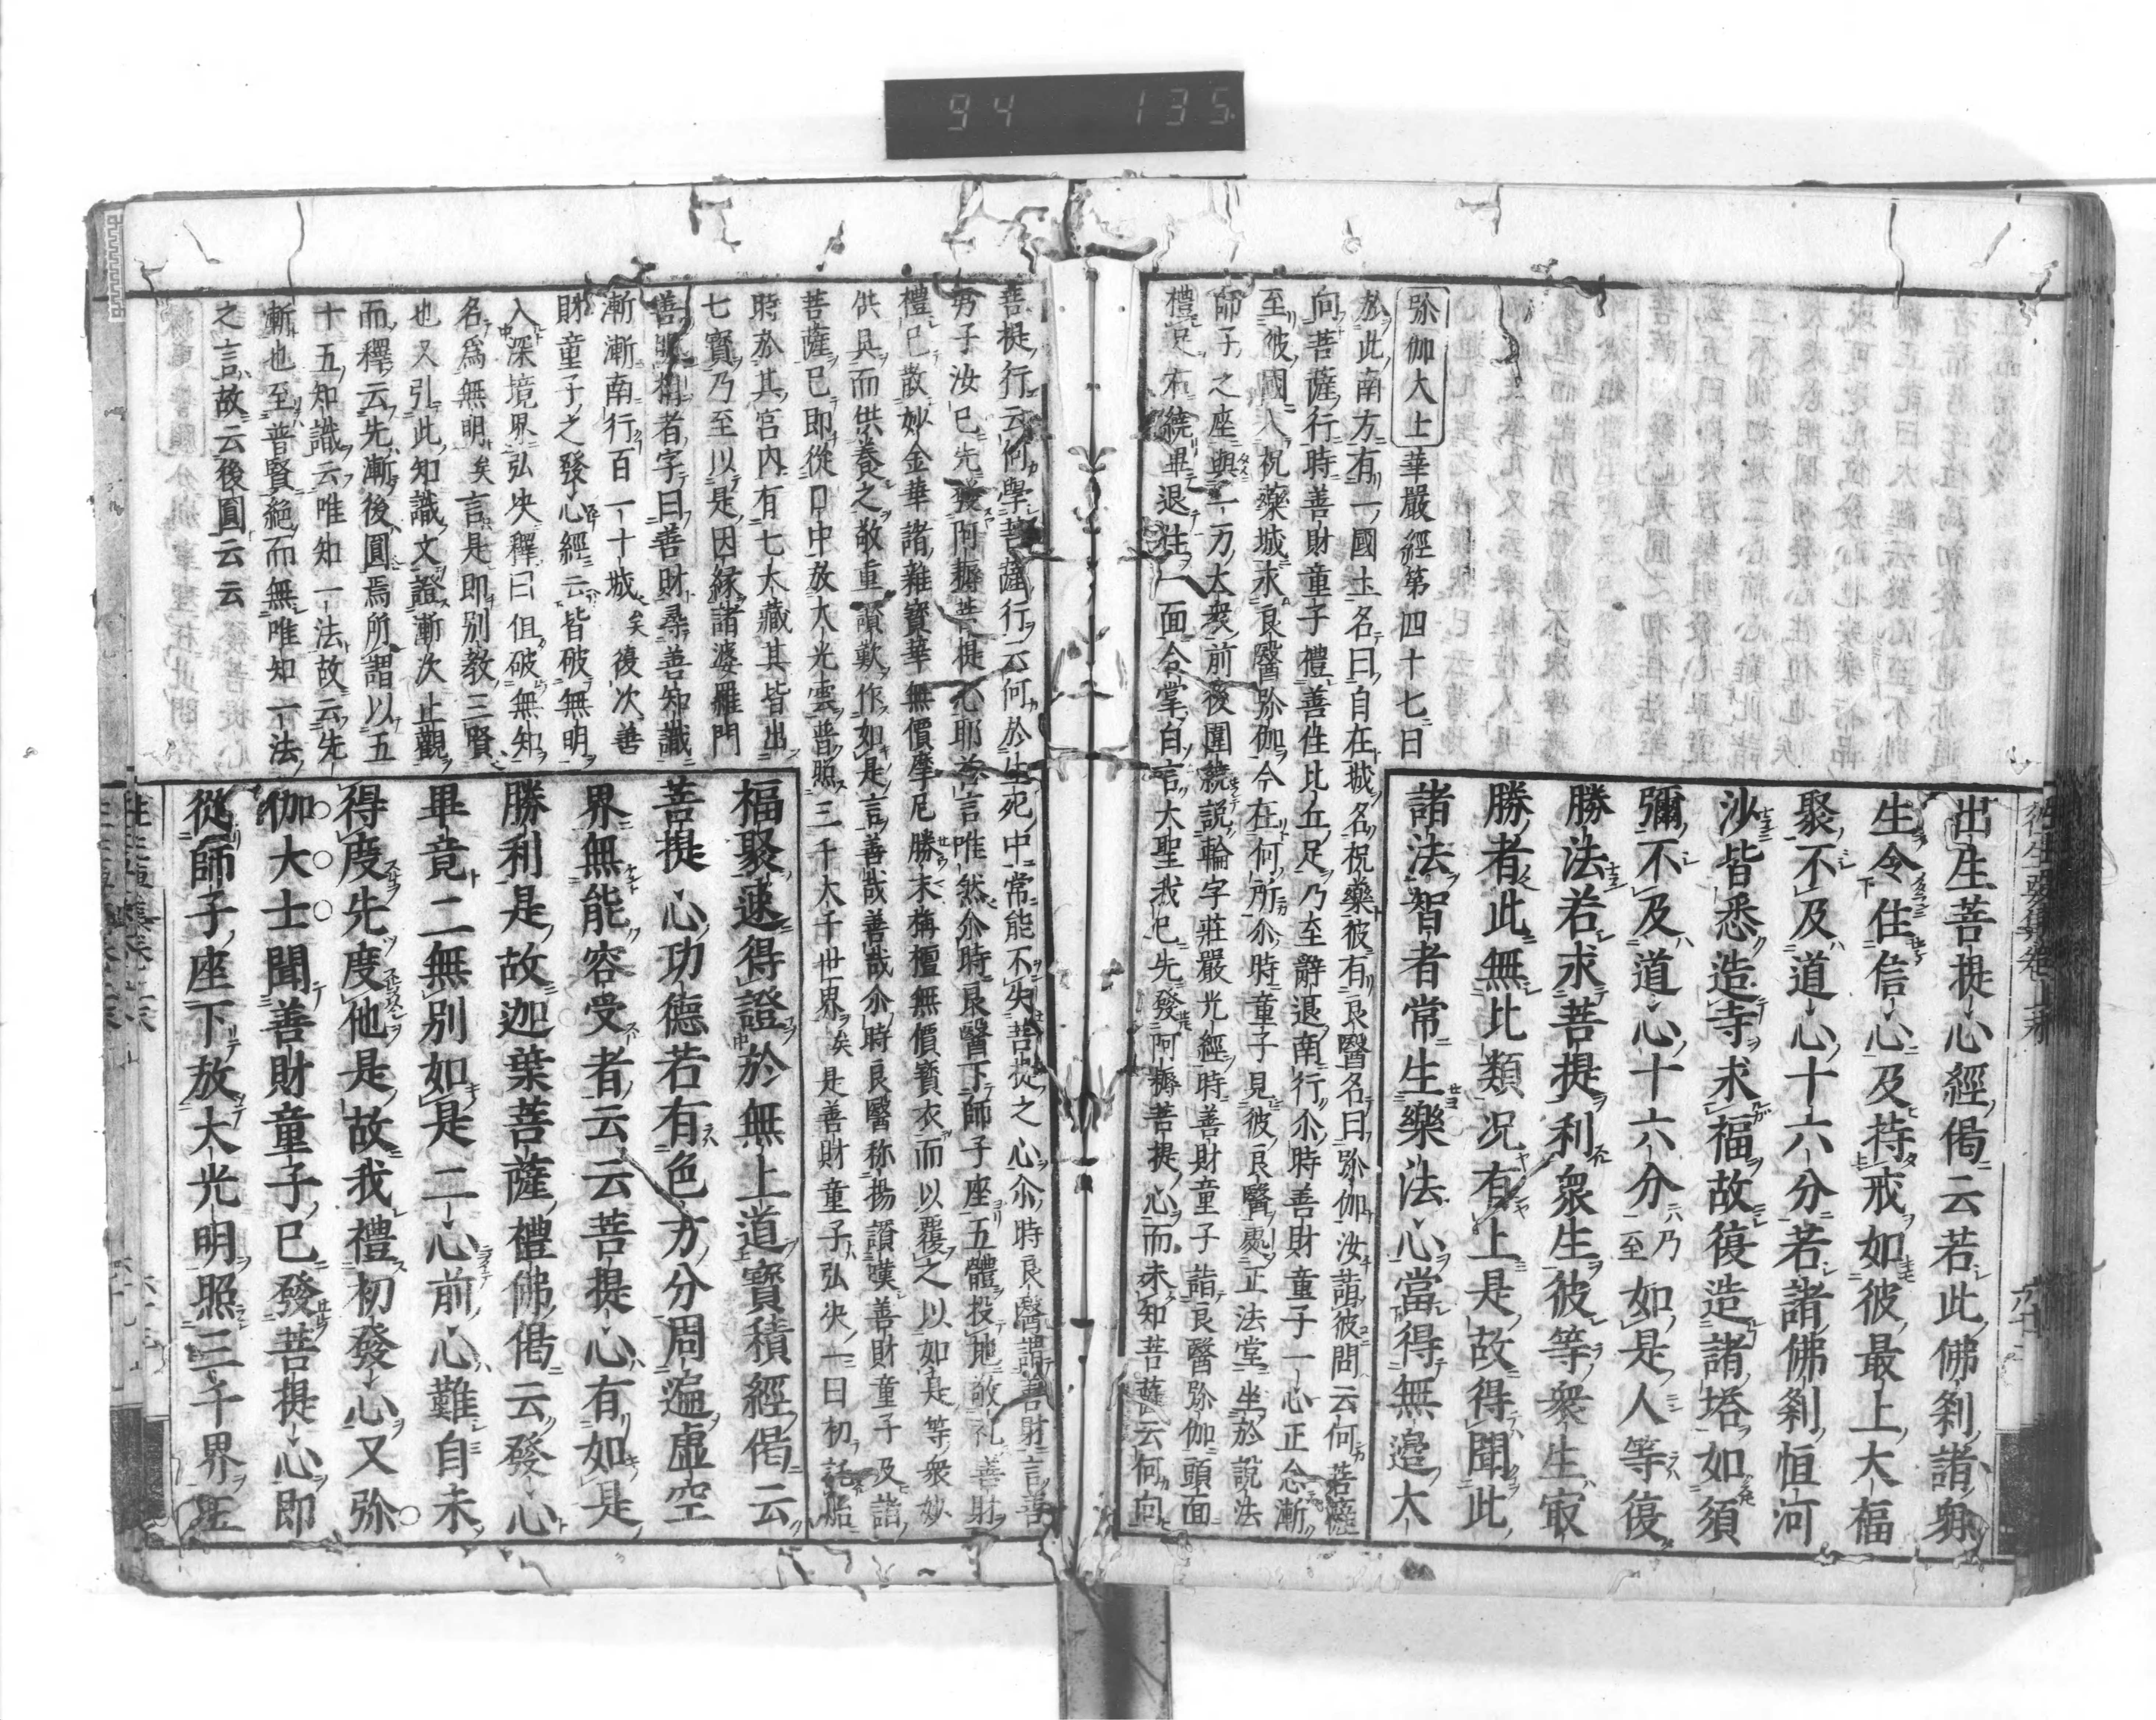 94 135
弥伽大士 華嚴經第四十七曰
於此南方有一國土名曰自在城名祝藥彼有良醫名曰弥伽汝詣彼問云何菩薩
向菩薩行時善財童子禮善住比丘足乃至辭退南行尒時善財童子一心正念漸
至彼國入祝藥城求良醫弥伽今在何所尒時童子見彼良醫處正法堂坐於說法
師子之座與一万大衆前後圍繞說輪字莊嚴光經時善財童子詣良醫弥伽頭面
禮足右繞畢退住一面合掌白言大聖我已先發阿耨菩提心而未知菩薩云何向
出生菩提心經偈云若此佛刹諸衆
生令住信心及持戒如彼最上大福
聚不及道心十六分若諸佛刹恒河
沙皆悉造寺求福故復造諸塔如須
彌不及道心十六分乃至如是人等復
勝法若求菩提利衆生彼等衆生㝡
勝者此無比類况有上是故得聞此
諸法智者常生樂法心當得無邊大
菩提行云何學菩薩行云何於生死中常能不失菩提之心尒時良醫謂善財言善
男子汝已先發阿耨菩提心耶答言唯然尒時良醫下師子座五體投地敬礼善財
禮已散妙金華諸雜寶華無價摩尼勝末栴檀無價寶衣而以覆之以如是等衆妙
供具而供養之敬重讚歎作如是言善哉善哉尒時良醫称揚讚嘆善財童子及諸
菩薩已即從口中放大光雲普照三千大千世界矣是善財童子弘决一曰初託胎
時於其宮内有七大藏其皆出
七寶乃至以是因縁諸婆羅門
善明相者字曰善財尋善知識
漸漸南行百一十城矣復次善
財童子之發心經云皆破無明
入深境界弘决釋曰但破無知
名爲無明矣言是即別教三賢
也又引此知識文證漸次止觀
而釋云先漸後圓焉所謂以五
十五知識云唯知一法故云先
漸也至普賢絶而無唯知一法
之言故云後圓云云
福聚速得證於無上道寶積經偈云
菩提心功德若有色方分周遍虛空
界無能容受者云云菩提心有如是
勝利是故迦葉菩薩禮佛偈云發心
畢竟二無別如是二心前心難自未
得度先度他是故我禮初發心又弥
伽大士聞善財童子已發菩提心即
從師子座下放大光明照三千界五